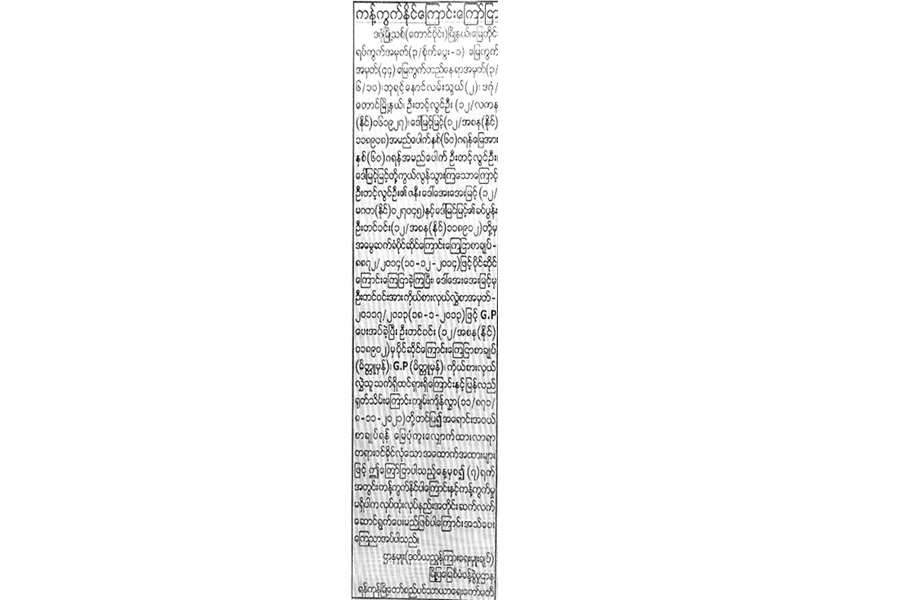 ကန့်ကွက်နိုင်ကြောင်းကြော်ငြာ
ဒဂုံမြို့သစ်(တောင်ပိုင်း)မြို့နယ်၊မြေတိုင်း
ရပ်ကွက်အမှတ်(၃/စိုက်ပွေး-၁) မြေကွက်
အမှတ်(၄၄)မြေကွက်တည်နေရာအမှတ်(၃/
၆/၁၁)၊ဘုရင့်နောင်လမ်းသွယ်(၂)၊ ဒဂုံ/
တောင်မြို့နယ်၊ ဦးတင့်လွင်ဦး (၁၂/လကန
(နိုင်)၁၆၁၉၂၇)၊ဒေါ်မြင့်မြင့်(၁၂/အစန(နိုင်)
၁၁၈၉၀၁)အမည်ပေါက်နှစ်(၆၀)ဂရန်မြေအား
နှစ်(၆၀)ဂရန်အမည်ပေါက် ဦးတင့်လွင်ဦး၊
ဒေါ်မြင့်မြင့်တို့ကွယ်လွန်သွားကြသောကြောင့်
ဦးတင့်လွင်ဦး၏ဇနီး ဒေါ်အေးအေးမြင့် (၁၂/
မဂတ(နိုင်)၁၂၇၀၄၅)နှင့်ဒေါ်မြင့်မြင့်၏ခင်ပွန်း
ဦးတင်ဝင်း(၁၂/အစန(နိုင်)၁၁၈၉၀၂)တို့မှ
အမွေဆက်ခံပိုင်ဆိုင်ကြောင်းကြေငြာစာချုပ်-
၈၈၇၂/၂၀၁၄(၁၀-၁၂-၂၀၁၄)ဖြင့်ပိုင်ဆိုင်
ကြောင်းကြေငြာခဲ့ကြပြီး၊ ဒေါ်အေးအေးမြင့်မှ
ဦးတင်ဝင်းအားကိုယ်စားလှယ်လွှဲစာအမှတ်-
၂၀၁၁၇/၂၀၁၃(၁၈-၁-၂၀၁၃)ဖြင့် G.P
ပေးအပ်ခဲ့ပြီး ဦးတင်ဝင်း (၁၂/အစန(နိုင်)
၁၁၈၉၀၂)မှပိုင်ဆိုင်ကြောင်းကြေငြာစာချုပ်
(မိတ္တူမှန်)၊ G.P (မိတ္တူမှန်)၊ ကိုယ်စားလှယ်
လွှဲသူသက်ရှိထင်ရှားရှိကြောင်းနှင့်ပြန်လည်
ရုတ်သိမ်းကြောင်းကျမ်းကျိန်လွှာ(၁၁/၈၇၁/
၈-၁၁-၂၀၂၁)တို့တင်ပြ၍အရောင်းအဝယ်
စာချုပ်ရန် မြေပုံကူးလျှောက်ထားလာရာ
တရားဝင်ခိုင်လုံသောအထောက်အထားများ
ဖြင့် ဤကြော်ငြာပါသည့်နေ့မှစ၍ (၇)ရက်
အတွင်းကန့်ကွက်နိုင်ပါကြောင်းနှင့်ကန့်ကွက်မှု
မရှိပါကလုပ်ထုံးလုပ်နည်းအတိုင်းဆက်လက်
ဆောင်ရွက်ပေးမည်ဖြစ်ပါကြောင်းအသိပေး
ကြေညာအပ်ပါသည်။
ဌာနမှူး(ဒုတိယညွှန်ကြားရေးမှူးချုပ်)
မြို့ပြမြေစီမံခန့်ခွဲမှုဌာန
ရန်ကုန်မြို့တော်စည်ပင်သာယာရေးကော်မတီ